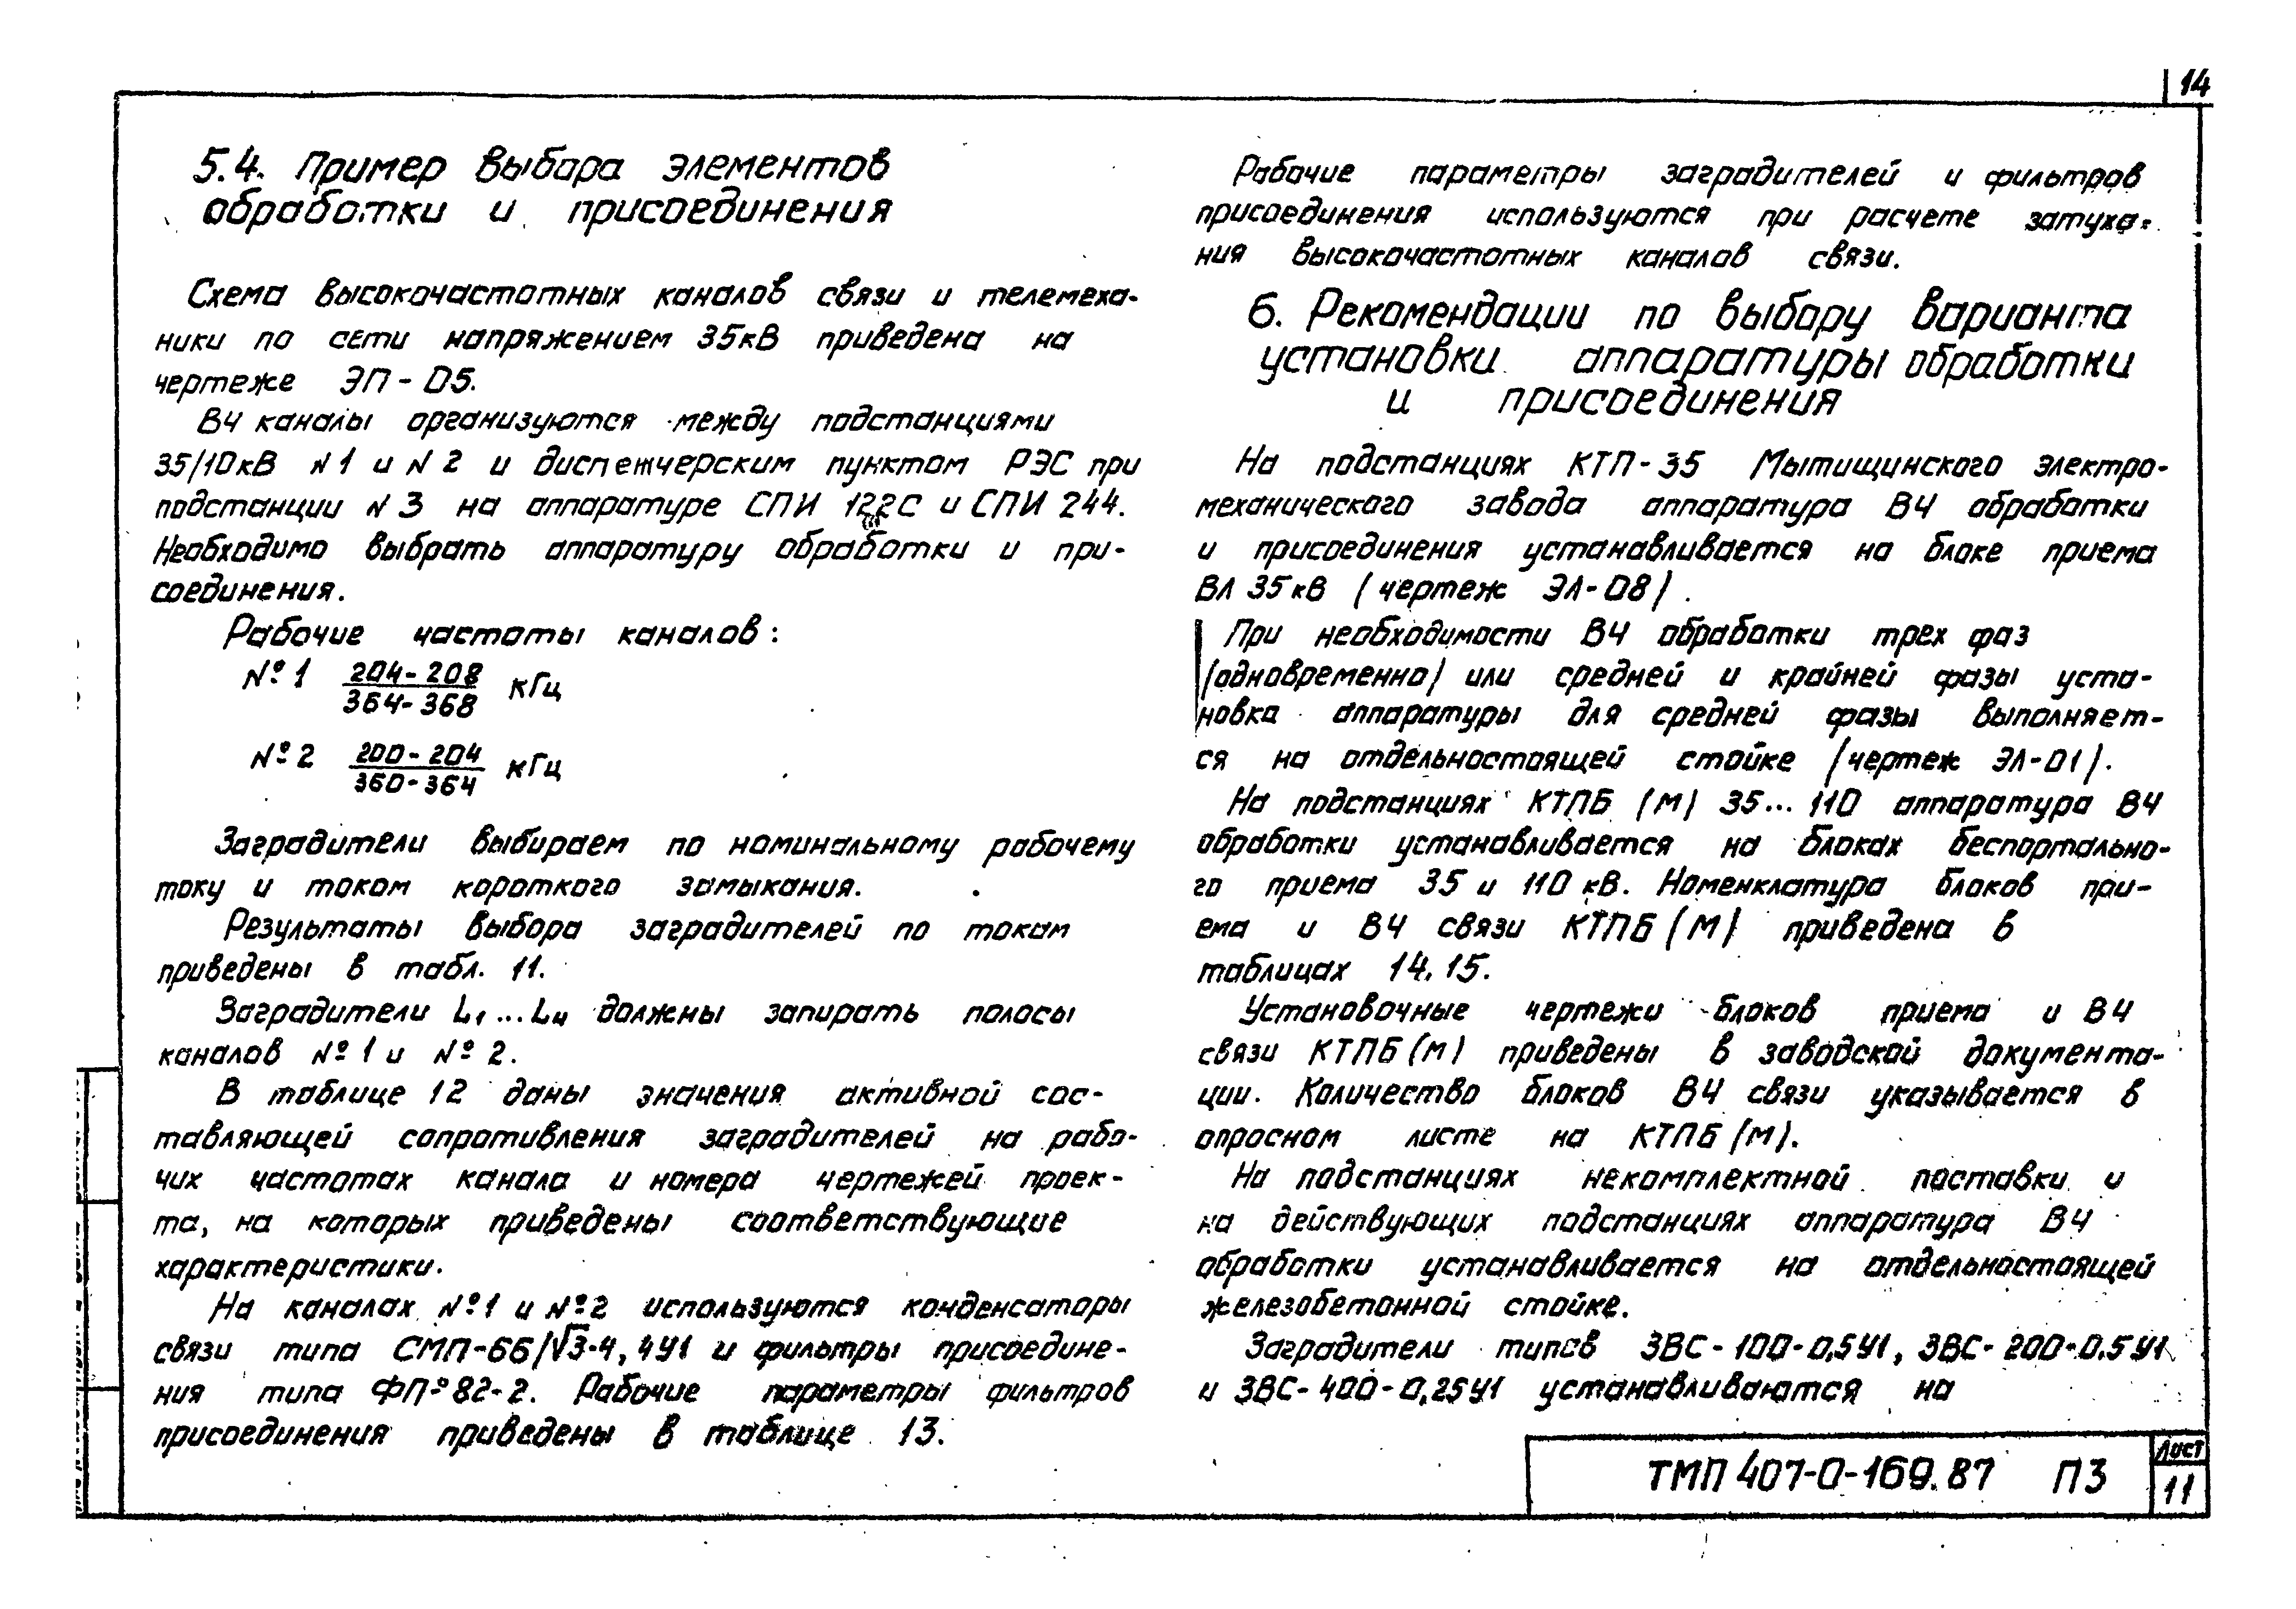 14
5.4. Пример выбора элементов
обработки и присоединения
Схема высокочастотных каналов связи и телемеха-
ники по сети напряжением 35кВ приведена на
чертеже ЭП-05.
ВЧ каналы организуются между подстанциями
35/10кВ N 1 и N 2 и диспетчерским пунктом РЭС при
подстанции N 3 на аппаратуре СПИ 122С и СПИ 244.
Необходимо выбрать аппаратуру обработки и при-
соединения.
Рабочие частоты каналов:
№ 1 204-208/364-368 кГц
№ 2 200-204/360-364 кГц
Заградители выбираем по номинальному рабочему
току и током короткого замыкания.
Результаты выбора заградителей по токам
приведены в табл. 11.
Заградители L1...L4 должны запирать полосы
каналов № 1 и № 2.
В таблице 12 даны значения активной сос-
тавляющей сопротивления заградителей на рабо-
чих частотах канала и номера чертежей проек-
та, на которых приведены соответствующие
характеристики.
На каналах №1 и №2 используются конденсаторы
связи типа СМП-66/√3-4,4У1 и фильтры присоедине-
ния типа ФП-82-2. Рабочие параметры фильтров
присоединения приведены в таблице 13.
Рабочие параметры заградителей и фильтров
присоединения используются при расчете затуха-
ния высокочастотных каналов связи.
6. Рекомендации по выбору варианта
установки аппаратуры обработки
и присоединения
На подстанциях КТП-35 Мытищинского электро-
механического завода аппаратура ВЧ обработки
и присоединения устанавливается на блоке приема
ВЛ 35кВ (чертеж ЭЛ-08).
При необходимости ВЧ обработки трех фаз
(одновременно) или средней и крайней фазы уста-
новка аппаратуры для средней фазы выполняет-
ся на отдельностоящей стойке (чертеж ЭЛ-01).
На подстанциях КТПБ (М) 35...110 аппаратура ВЧ
обработки устанавливается на блоках беспортально-
го приема 35 и 110 кВ. Номенклатура блоков при-
ема и ВЧ связи КТПБ(М) приведена в
таблицах 14.15.
Установочные чертежи блоков приема и ВЧ
связи КТПБ(М) приведены в заводской документа-
ции. Количество блоков ВЧ связи указывается в
опросном листе на КТПБ(М).
На подстанциях некомплектной поставки и
на действующих подстанциях аппаратура ВЧ
обработки устанавливается на отдельностоящей
железобетонной стойке.
Заградители типов ЗВС-100-0,5У1, ЗВС-200-0.5У1
и ЗВС-400-0,25У1 устанавливаются на
ТМП 407-0-169.87 ПЗ
Лист
11